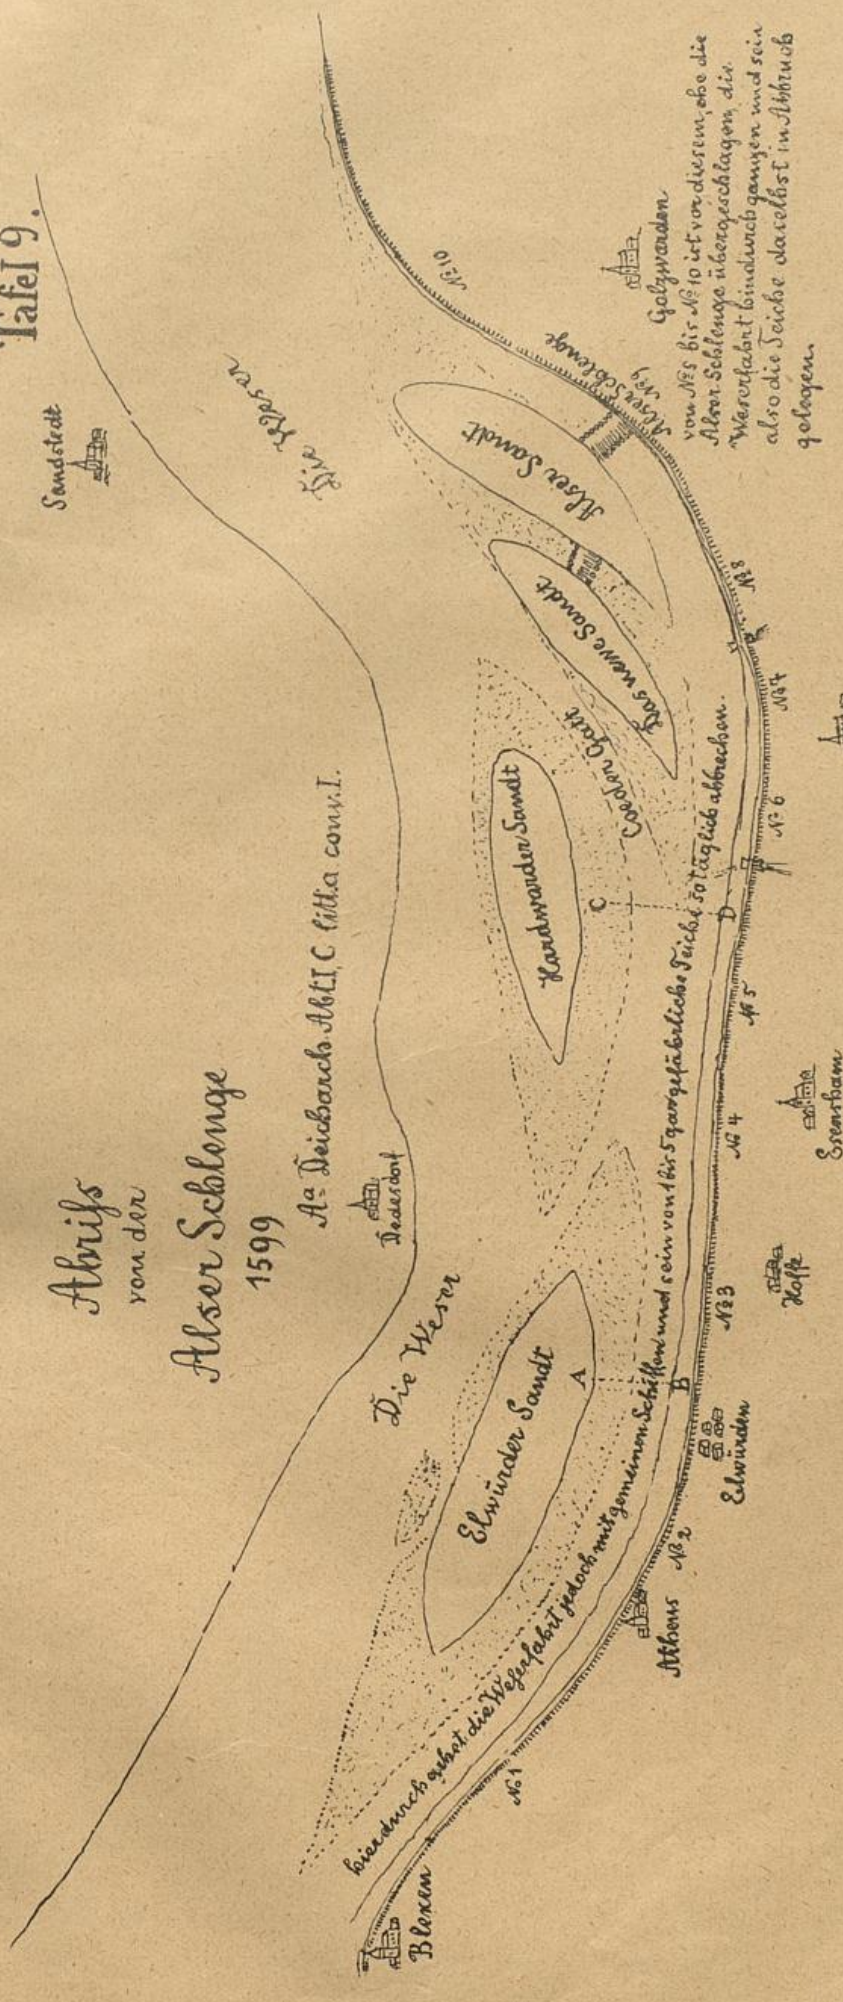 Tafel 9.
Abriſs
von der
Alser Schlenge
1599
Aa Deicharch. Abt I, C litt.a conv. I.
Sandstedt
Dedesdorf
Die Weser
Die Weser
Elwürder Sandt
Hardwarder Sandt
Coeden Gatt
Das neue Sandt
Alser Sandt
Alser Schlenge
A
B
C
D
hierdurch gehet die Weserfahrt jedoch mit gemeinen Schiffen und sein von 1 bis 5 gar gefährliche Teiche so täglich abbrechen.
Blexen
No 1
Athens
No 2
Eelwürden
No 3
Hoffe
No 4
Esensham
No 5
No 6
No 7
No 8
No 9
No 10
Golzwarden
von No 5 bis No 10 ist vor diesem, ehe die
Alser Schlenge übergeschlagen, die
Weserfahrt hindurch gangen und sein
also die Teiche daselbst in Abbruch
gelegen.